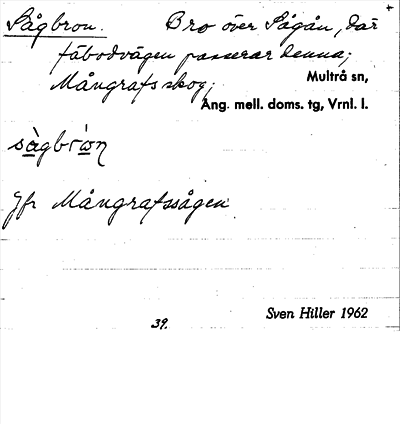 Sågbron. Bro över Sågån, där
fäbodvägen passerar denna;
Mångrafs skog;
Multrå sn,
Ång. mell. doms. tg, Vrnl. l.
sàgbrωn
Jfr Mångrafssågen
39.
Sven Hiller 1962